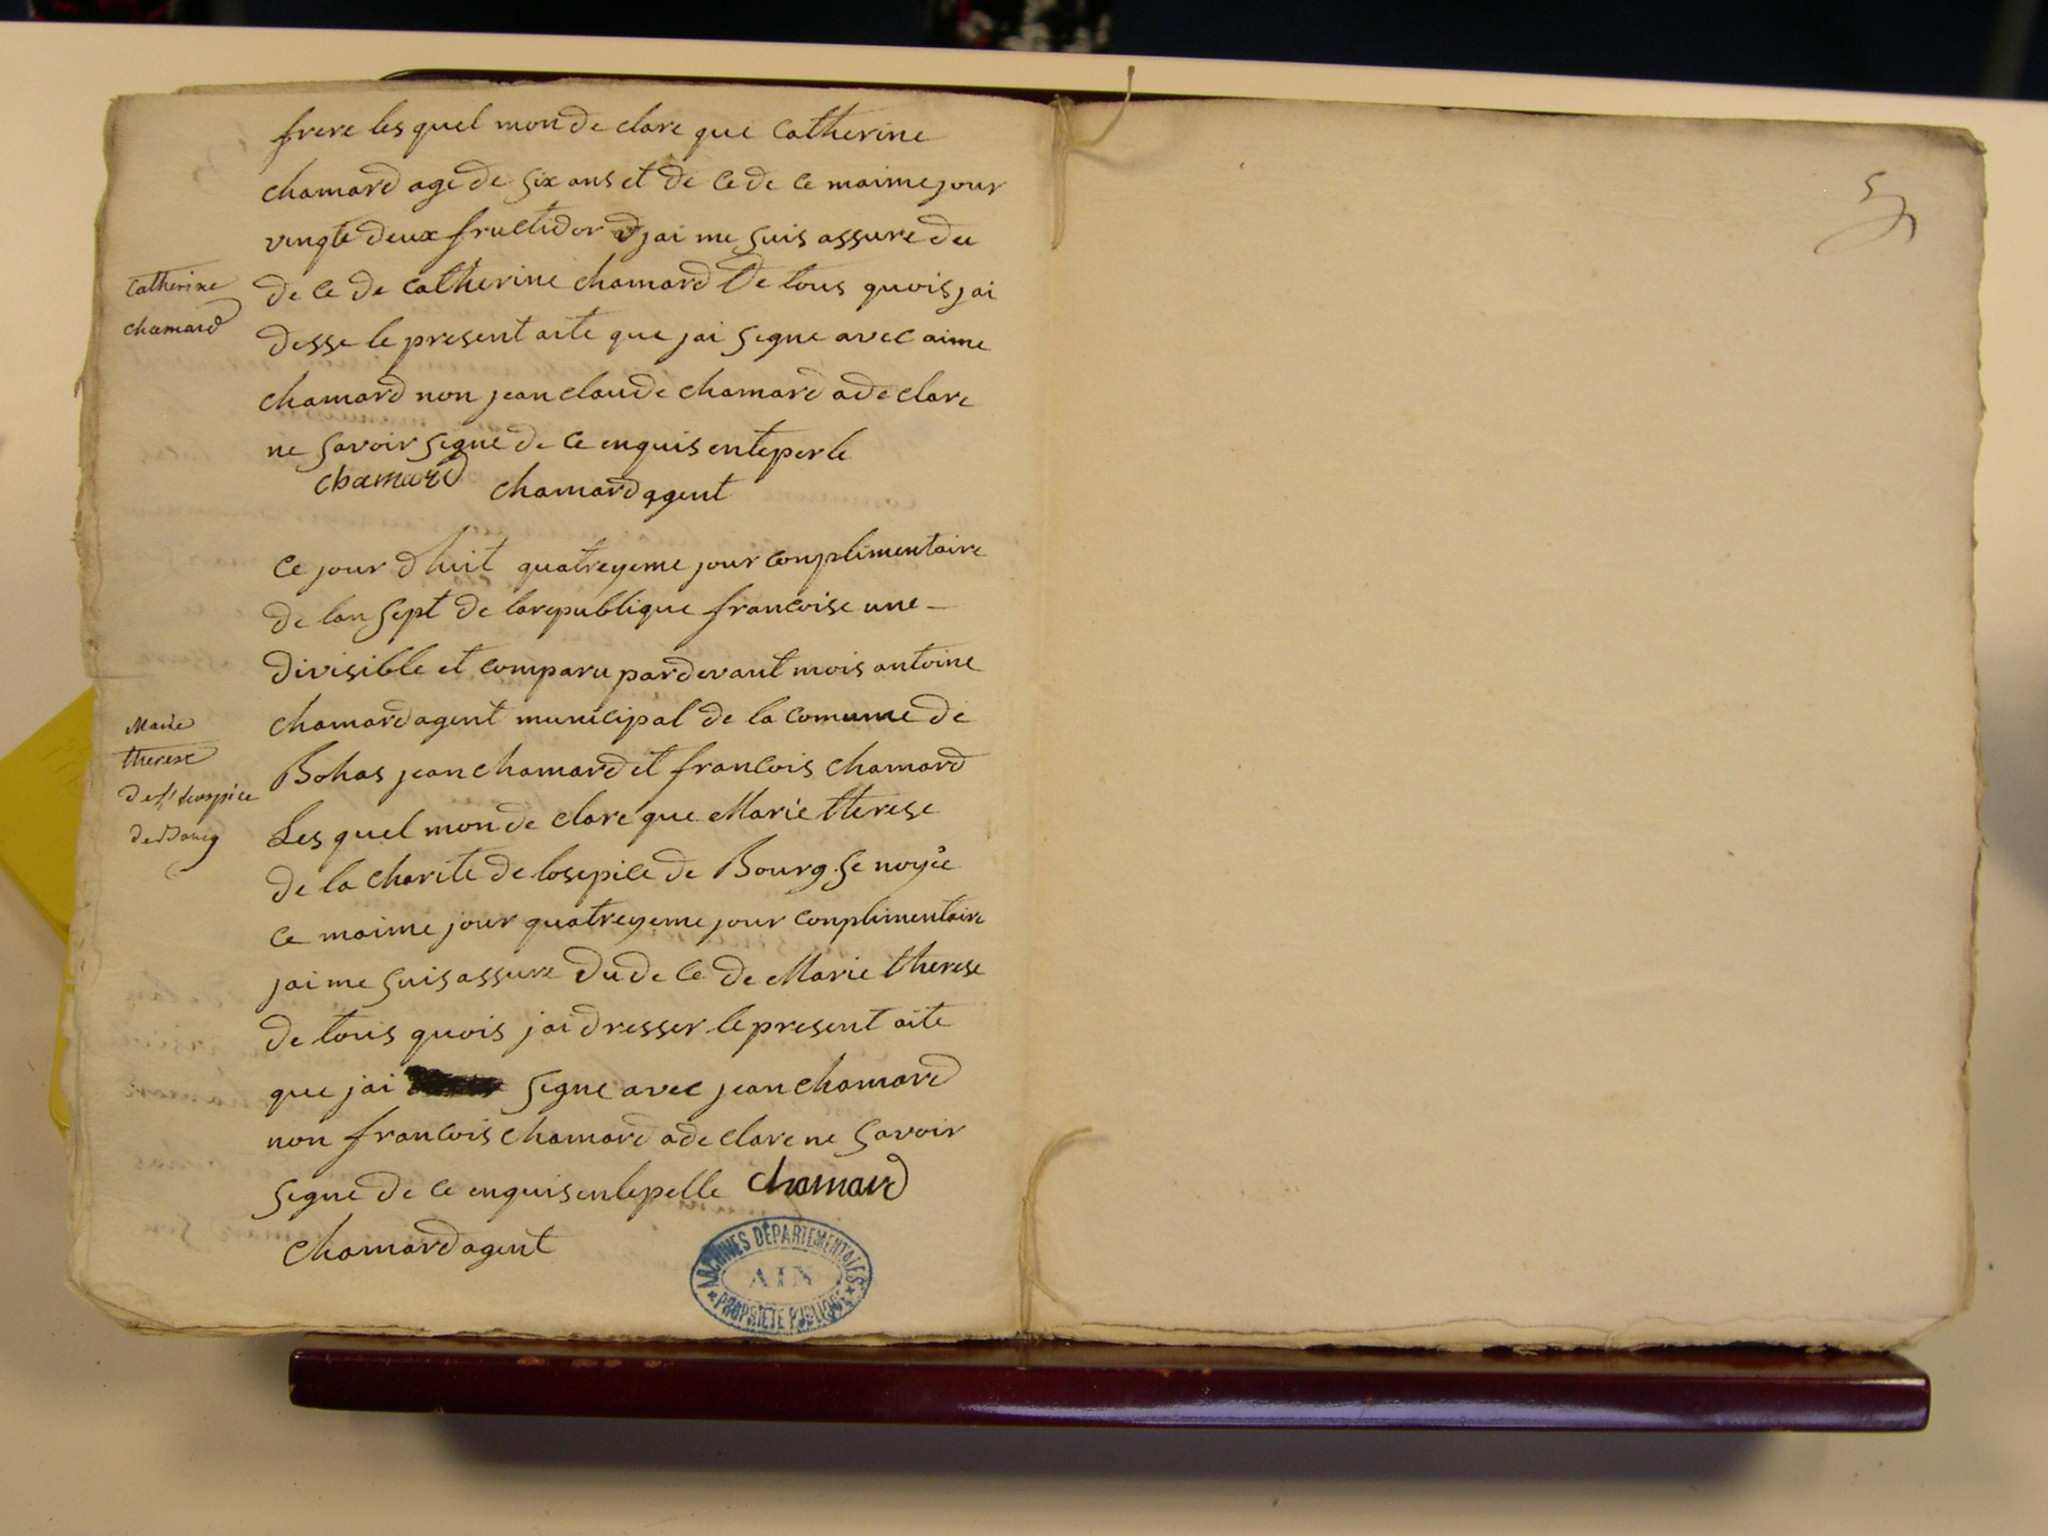 frere les quel mon de clare que catherine
chamard age de six ans et de ce de ce maime jour
vingte deux fructidor jai me suis assure du
de ce de catherine chamard De tous quois jai
desse le present aite que jai segne avec aime
chamard non jean claude chamard a de clare
ne savoir segne de ce enquis enteperle
chamard chamard agent
catherine
chamard
ce jour d huit quatreyeme jour conplimentaire
de lan sept de la republique francoise une
divisible et comparu pardevant mois antoine
chamard agent municipal de la comune de
Bohas jean chamard et francois chamard
Les quel mon de clare que Marie therese
de la charite de losepice de Bourg se noyée
ce maime jour quatreyeme jour conplimentaire
jai me suis assure du de ce de Marie therese
de tous quois jai dresser le present aite
que jai segne avec jean chamard
non francois chamard a de clare ne savoir
segne de ce enquis enlepelle chamard
chamard agent
Marie
therese
de l'hospice
de Bourg
5
ARCHIVES DÉPARTEMENTALES
AIN
PROPRIÉTÉ PUBLIQUE